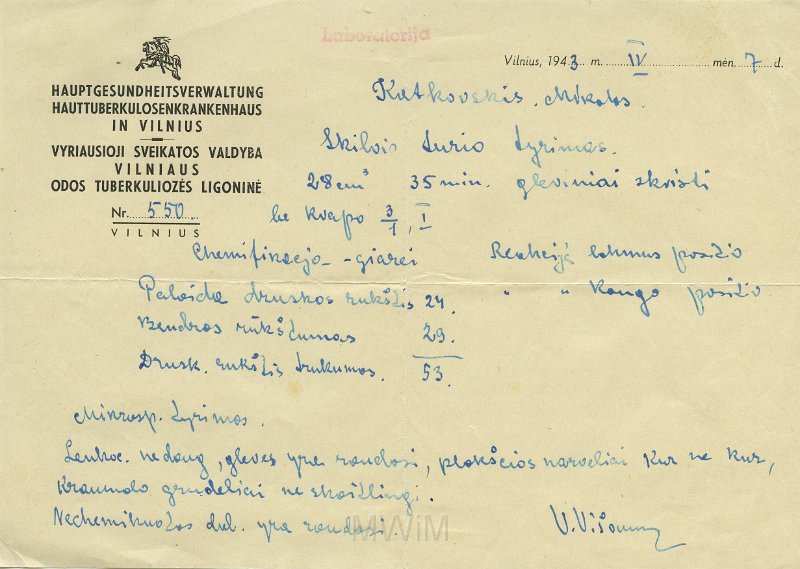 Laboratorija
Vilnius, 1943 m. IV mėn. 7 d.
HAUPTGESUNDHEITSVERWALTUNG
HAUTTUBERKULOSENKRANKENHAUS
IN VILNIUS
VYRIAUSIOJI SVEIKATOS VALDYBA
VILNIAUS
ODOS TUBERKULIOZĖS LIGONINĖ
Nr. 550
VILNIUS
Katkovskis Mikolos.
Skilvio turio tyrimas.
28 cm³ 35 min. gleviniai skisti
be kvapo 3/1, I
Chemifikacjo - giarei Reakcija lakmus positio
Palaida druskos rukštis 24. " " Kongo positio
Bendras rūkštumas 29.
Drusk. rukštis trukumas. 53.
Mikrosp. tyrimas.
Leukoc. nedaug, glevės yra randasi, plokščios narveliai kur ne kur,
Kraumolo grudeliai ne skaitlingi.
Nechemikuotos dal. yra randasi.
MWiM